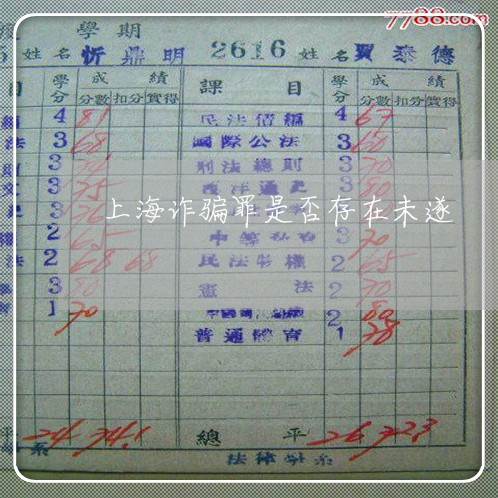 7788.com
學期
姓名 忻鼎明 2616 姓名 賈泰德
目 學分 成績 課目 學分 成績
分數 扣分 實得 分數 扣分 實得
4 81 民法債編 4 67
法 3 68 國際公法 3 60
3 刑法總則 3 70
3 75 西洋通史 3 80
上海诈骗罪是否存在未遂
2 65 3 70
法 2 68 68 民法物權 2 65
3 憲法 2 70
1 70 2 80
普通體育 1 78
平 24 74.1 總平 26 72.3
系 法律學系